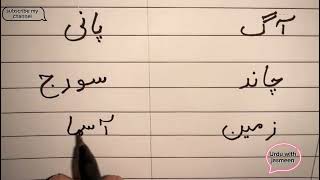 subscribe my
channel
آگ پانی
چاند سورج
زمین آسما
Urdu with
jasmeen